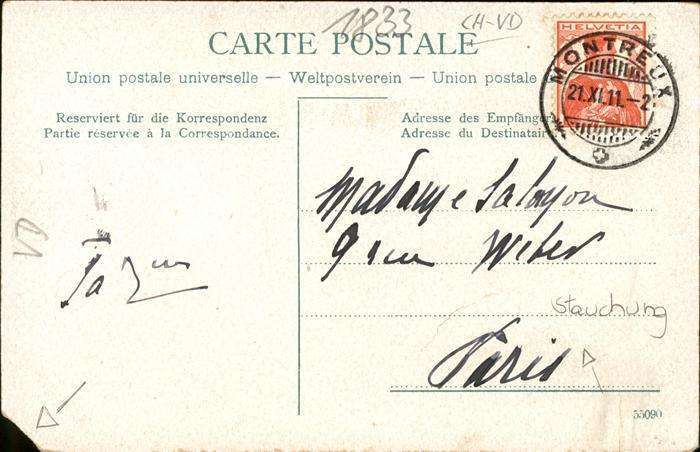 1833
CH-VD
CARTE POSTALE
HELVETIA
Union postale universelle — Weltpostverein — Union postale
MONTREUX
21.XI.11.-2
Reserviert für die Korrespondenz
Partie réservée à la Correspondance.
Adresse des Empfänger
Adresse du Destinatair
Madame
9 rue Weber
VD
Stauchung
Paris
55090